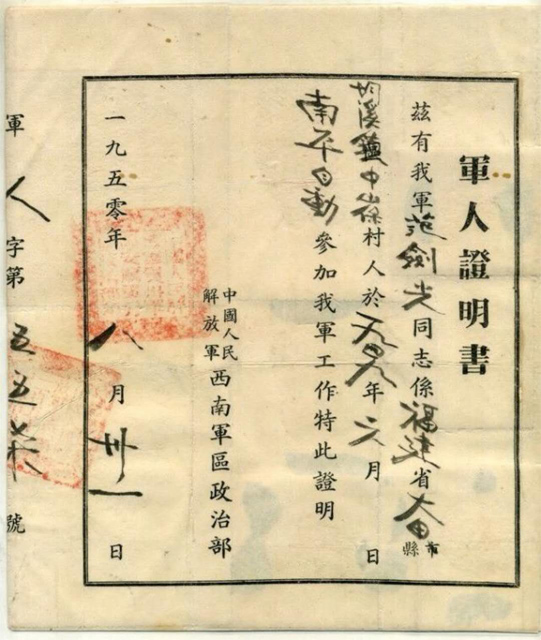 軍人證明書
茲有我軍范劍光同志係福建省大田市縣
村人於一九四九年六月　日
南平自動參加我軍工作特此證明
中國人民解放軍西南軍區政治部
一九五零年八月卅一日
軍人字第五五號